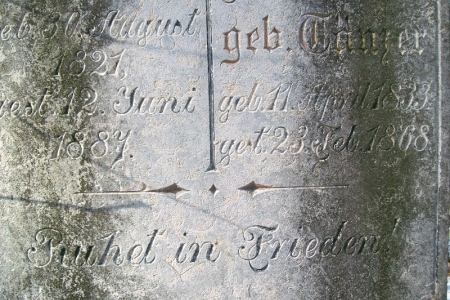 geb. 30. August
1821,
gest. 12. Juni
1887.
geb. Tänzer
geb. 11. April 1833
gest. 23. Feb. 1868.
Ruhet in Frieden!